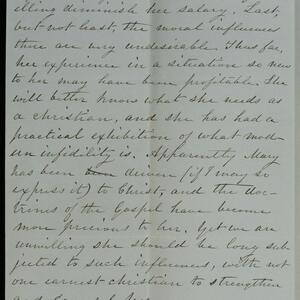 elling diminish her salary. Last,
but not least, the moral influences
there are very undesirable. Thus far,
her experience in a situation so new
to her may have been profitable. She
will better know what she needs as
a christian, and she has had a
practical exhibition of what mod-
ern infidility is. Apparently Mary
has been driven (if I may so
express it) to Christ, and the doc-
trines of the Gospel have become
more precious to her. Yet we are
unwilling she should be long sub-
jected to such influences, with not
one earnest christian to strengthen
and